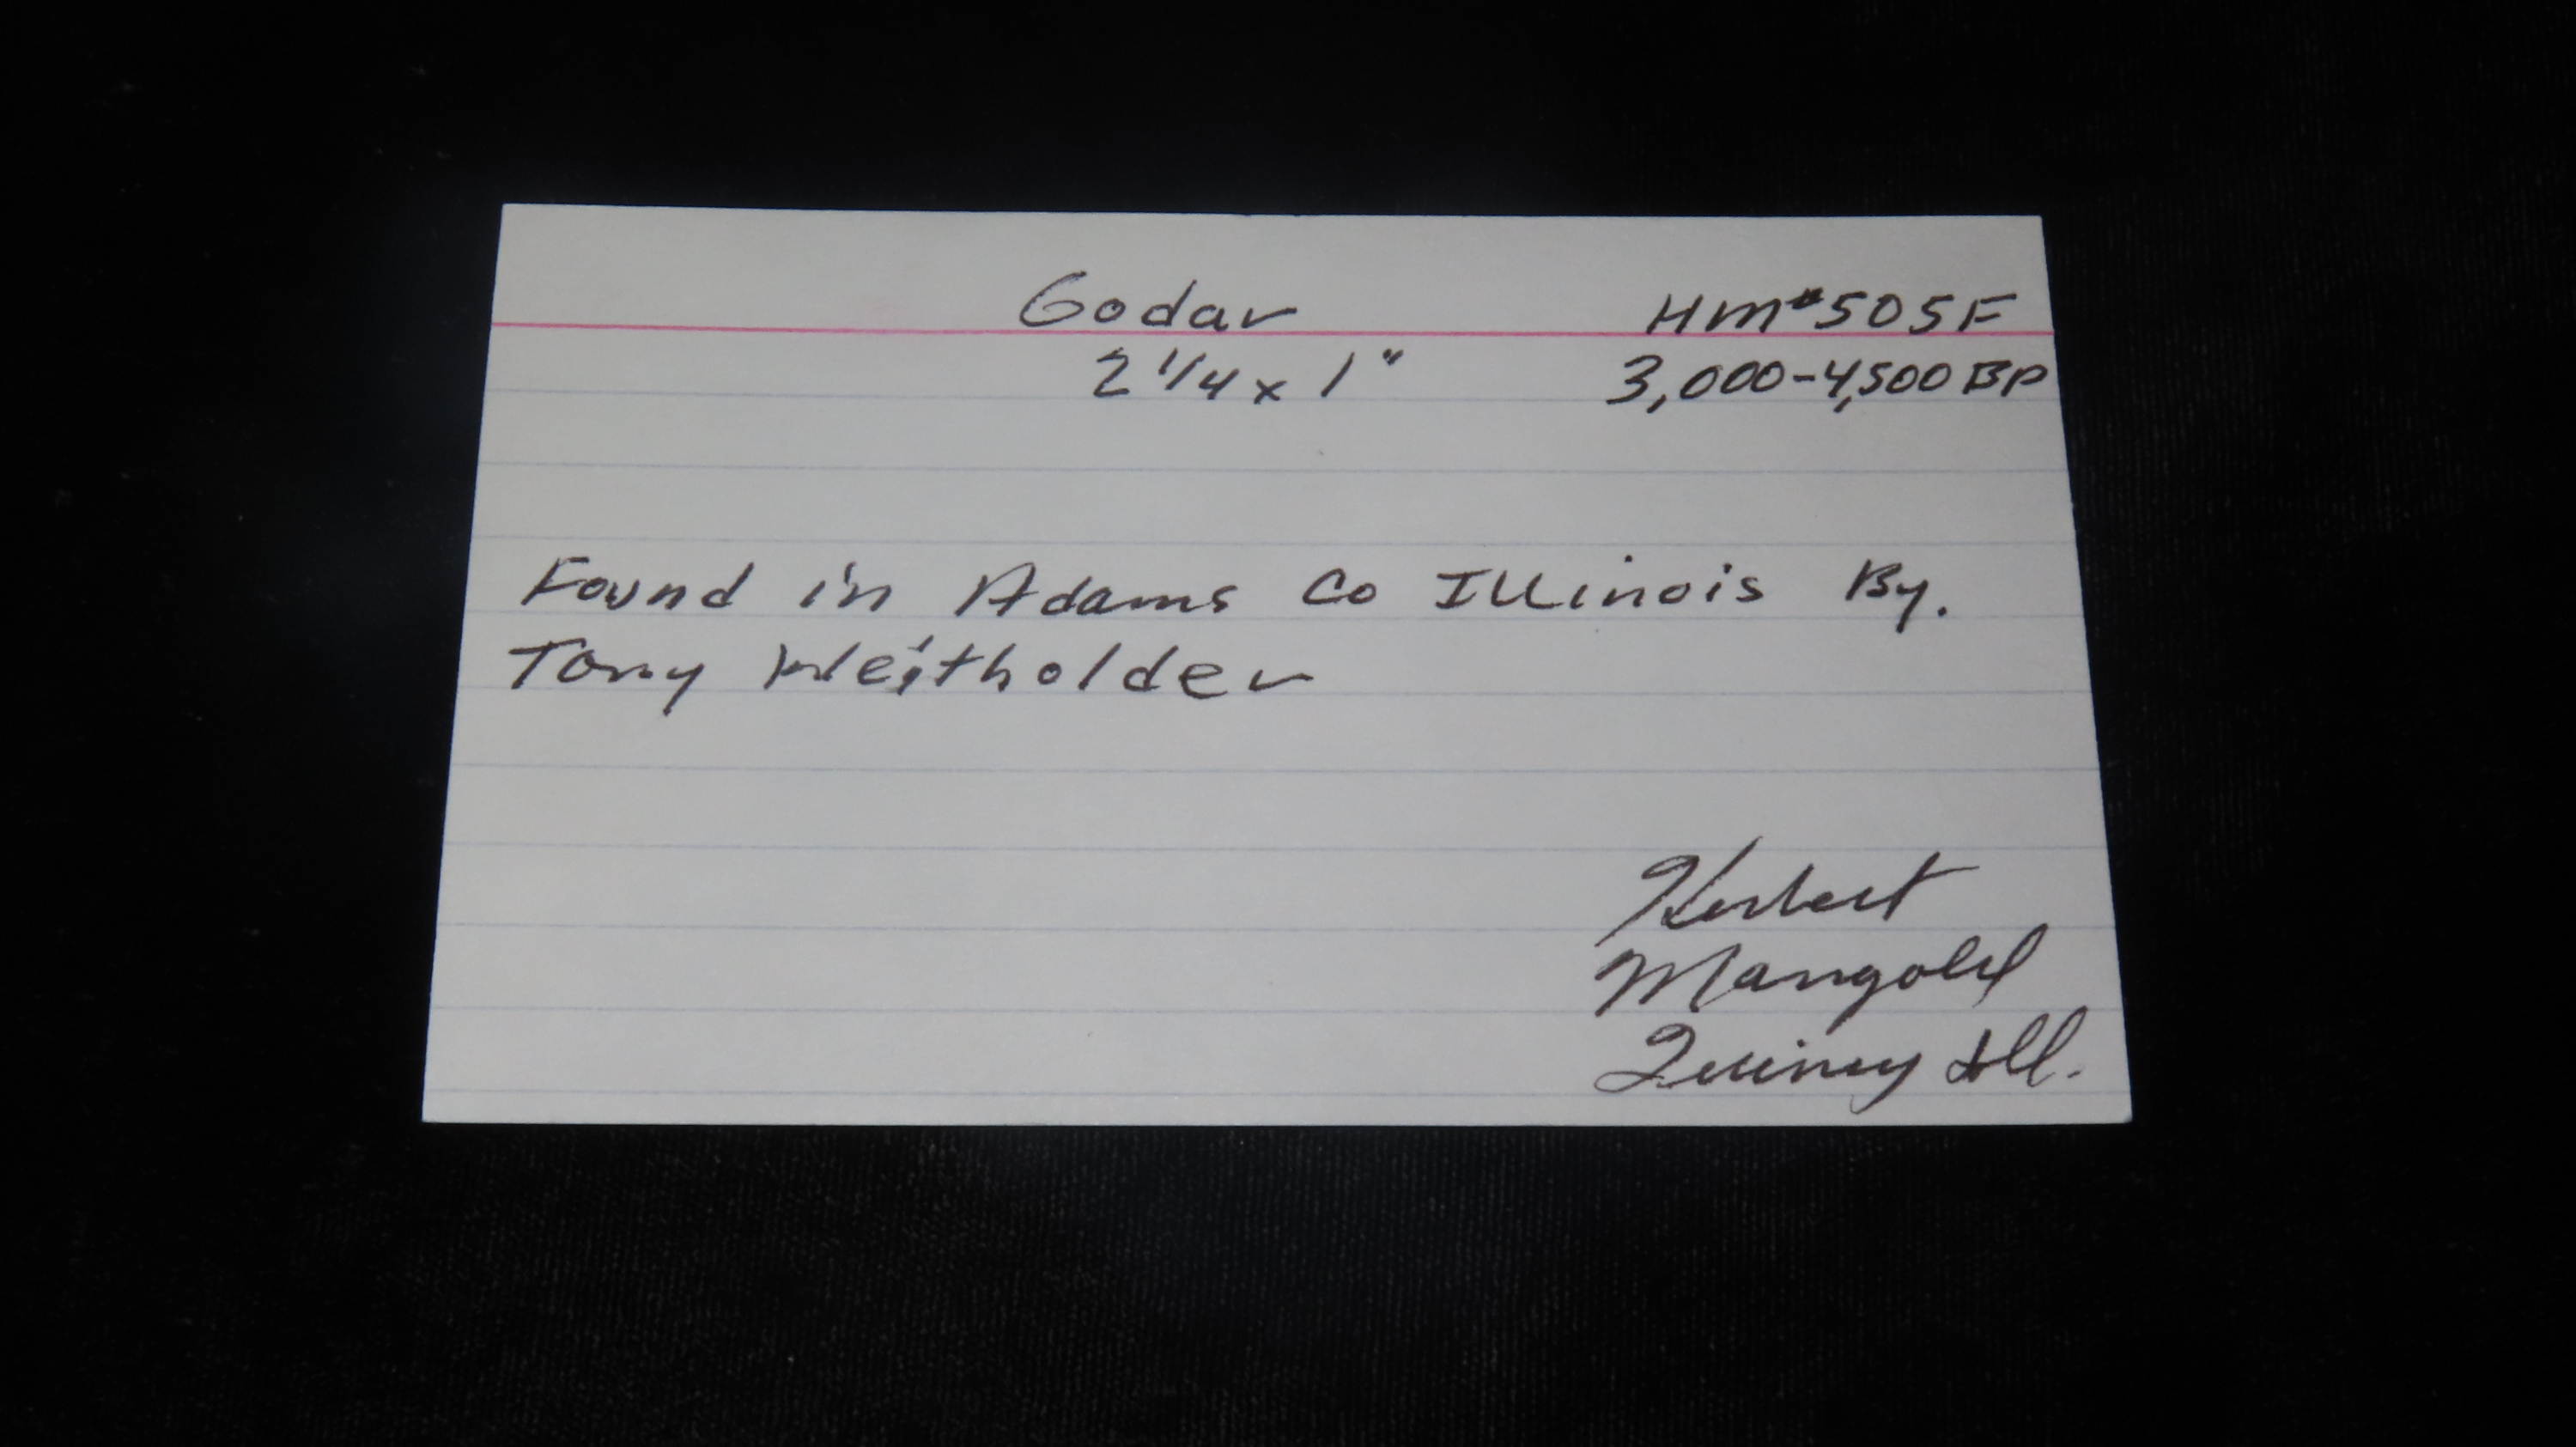 Godar HM#505F
2 1/4 x 1" 3,000-4,500 BP
Found in Adams Co Illinois By.
Tony Weitholder
Herbert
Mangold
Quincy Ill.